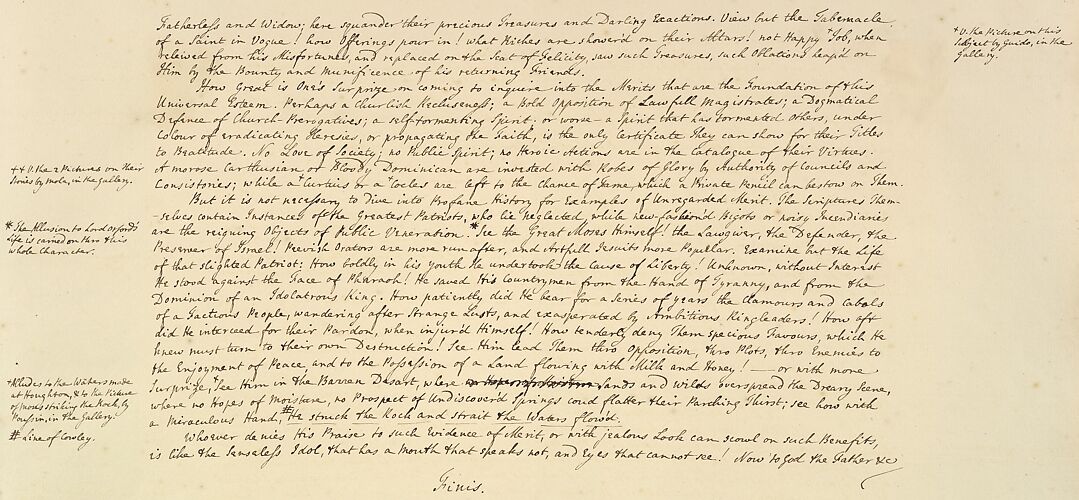 Fatherless and Widow; here squander their precious Treasures and Darling Exactions. View but the Tabernacle
of a Saint in Vogue! how Offerings pour in! what Riches are shower'd on their Altars! not Happy Job, when
releived from his Misfortunes, and replaced on the Seat of Felicity, saw such Treasures, such Oblations heap'd on
Him by the Bounty and munificence of his returning Friends.
+ V. the Picture on this
Subject by Guido, in the
Gallery.
How Great is One's Surprize on coming to enquire into the Merits that are the Foundation of this
Universal Esteem. Perhaps a Churlish Recluseness; a bold Opposition of Lawfull Magistrates; a Dogmatical
Defence of Church-Prerogatives; a self-tormenting Spirit; or worse - a Spirit that has tormented others, under
Colour of eradicating Heresies, or propagating the Faith, is the only Certificate They can show for their Titles
to Beatitude. No Love of Society; no Public Spirit; no Heroic Actions are in the Catalogue of their Virtues.
A morose Carthusian, or Bloody Dominican are invested with Robes of Glory by Authority of Councils and
Consistories; while a Curtius or a Cocles are left to the chance of Fame, which a Private Pencil can bestow on Them.
++ V. the 2 Pictures on their
Stories by Mola, in the Gallery.
But it is not necessary to dive into Profane History for Examples of Unregarded Merit. The Scriptures Them-
-selves contain Instances of the Greatest Patriots, who lie Neglected, while new-fashion'd Bigots or noisy Incendiaries
are the reigning Objects of Public Veneration. * See the Great Moses Himself! the Lawgiver, the Defender, the
Preserver of Israel! Peevish Orators are more run after, and Artfull Jesuits more Popular. Examine but the Life
of that slighted Patriot: How boldly in his youth He undertook the Cause of Liberty! Unknown, without Interest
He stood against the Face of Pharaoh! He saved His Countrymen from the Hand of Tyranny, and from the
Dominion of an Idolatrous King. How patiently did He bear for a Series of years the Clamours and Cabals
of a Factious People, wandering after Strange Lusts, and exasperated by Ambitious Ringleaders! How oft
did He interceed for their Pardon, when injur'd Himself! How tenderly deny Them specious Favours, which He
knew must turn to their own Destruction! See Him lead Them thro Opposition, thro Plots, thro Enemies to
the Enjoyment of Peace, and to the Possession of a Land flowing with Milk and Honey! — or with more
Surprize, + See Him in the Barren Desart, where Sands and Wilds overspread the Dreary Scene,
where no Hopes of Moisture, no Prospect of Undiscover'd Springs coud flatter their Parching Thirst; see how with
a Miraculous Hand, # He struck the Rock and Strait the Waters flow'd.
* The Allusion to Lord Orford's
Life is carried on thro this
whole Character.
+ Alludes to the Waters made
at Houghton, & to the Picture
of Moses striking the Rock, by
Poussin, in the Gallery.
# Line of Cowley.
Whoever denies His Praise to such Evidence of Merit, or with jealous Look can scowl on such Benefits,
is like the Senseless Idol, that has a Mouth that speaks not, and Eyes that cannot see! Now to God the Father &c
Finis.